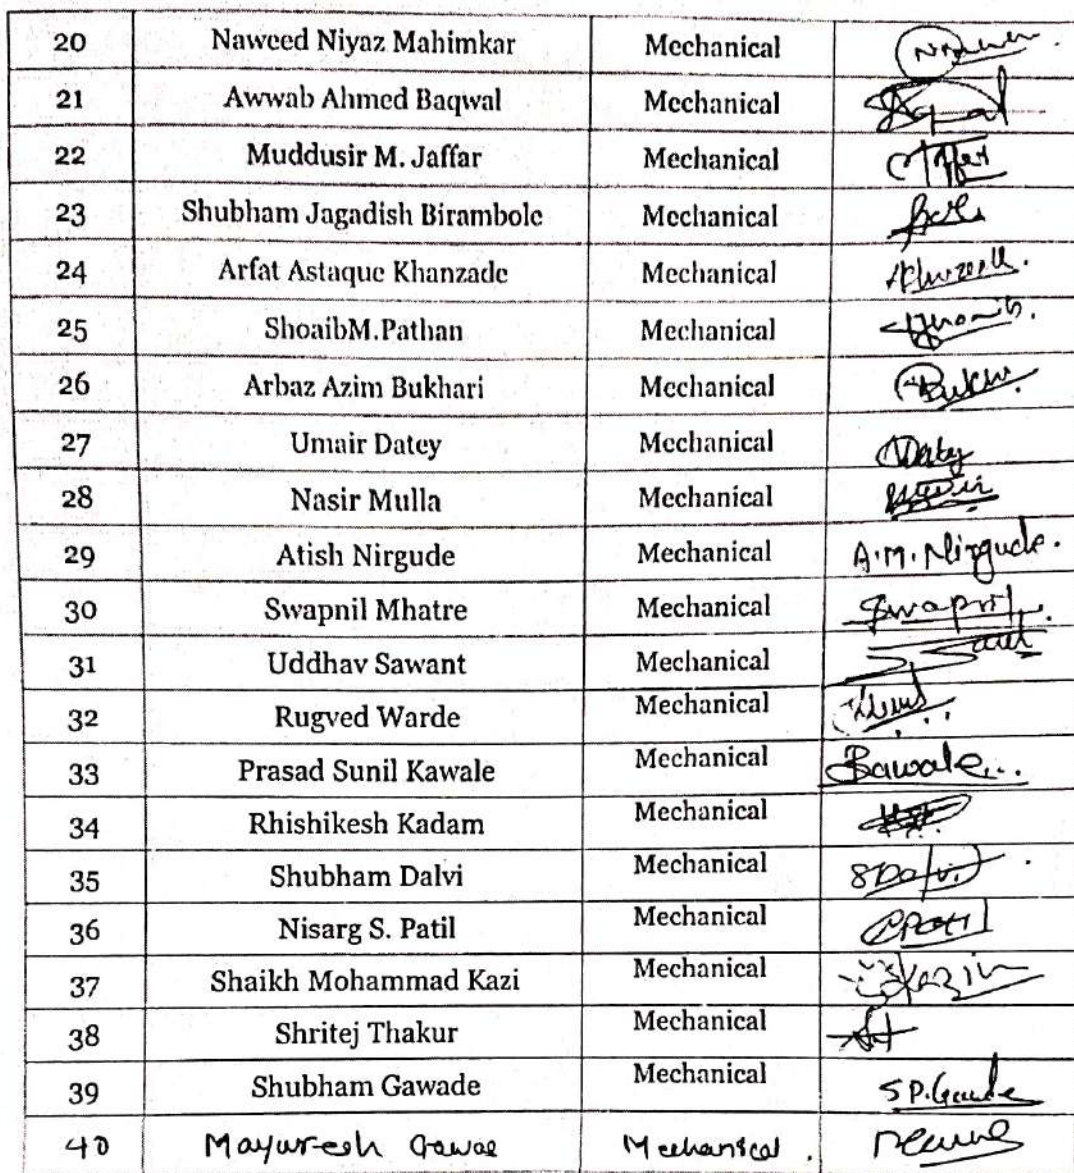 20 Naweed Niyaz Mahimkar Mechanical
21 Awwab Ahmed Baqwal Mechanical
22 Muddusir M. Jaffar Mechanical
23 Shubham Jagadish Birambole Mechanical
24 Arfat Astaque Khanzade Mechanical
25 ShoaibM.Pathan Mechanical
26 Arbaz Azim Bukhari Mechanical
27 Umair Datey Mechanical Datey
28 Nasir Mulla Mechanical
29 Atish Nirgude Mechanical A.M. Nirgude.
30 Swapnil Mhatre Mechanical Swapnil
31 Uddhav Sawant Mechanical
32 Rugved Warde Mechanical
33 Prasad Sunil Kawale Mechanical
34 Rhishikesh Kadam Mechanical
35 Shubham Dalvi Mechanical SDalvi
36 Nisarg S. Patil Mechanical
37 Shaikh Mohammad Kazi Mechanical
38 Shritej Thakur Mechanical
39 Shubham Gawade Mechanical
40 Mayuresh Mechanical.